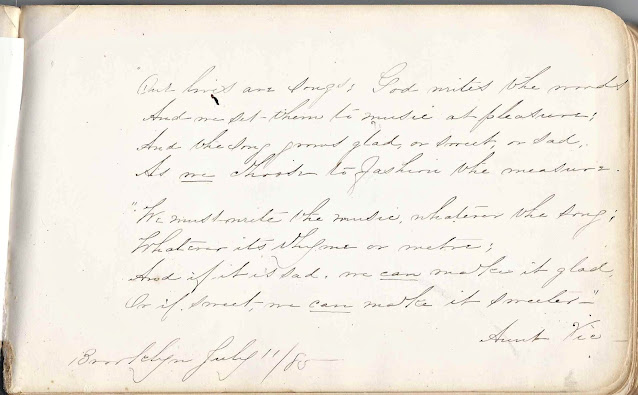 "Our lives are songs; God writes the words
And we set them to music at pleasure;
And the song grows glad, or sweet, or sad,
As we choose to fashion the measure.
"We must write the music, whatever the song;
Whatever its rhyme or metre;
And if it is sad, we can make it glad,
Or if sweet, we can make it sweeter"—
Aunt Vic—
Brooklyn July 11/85